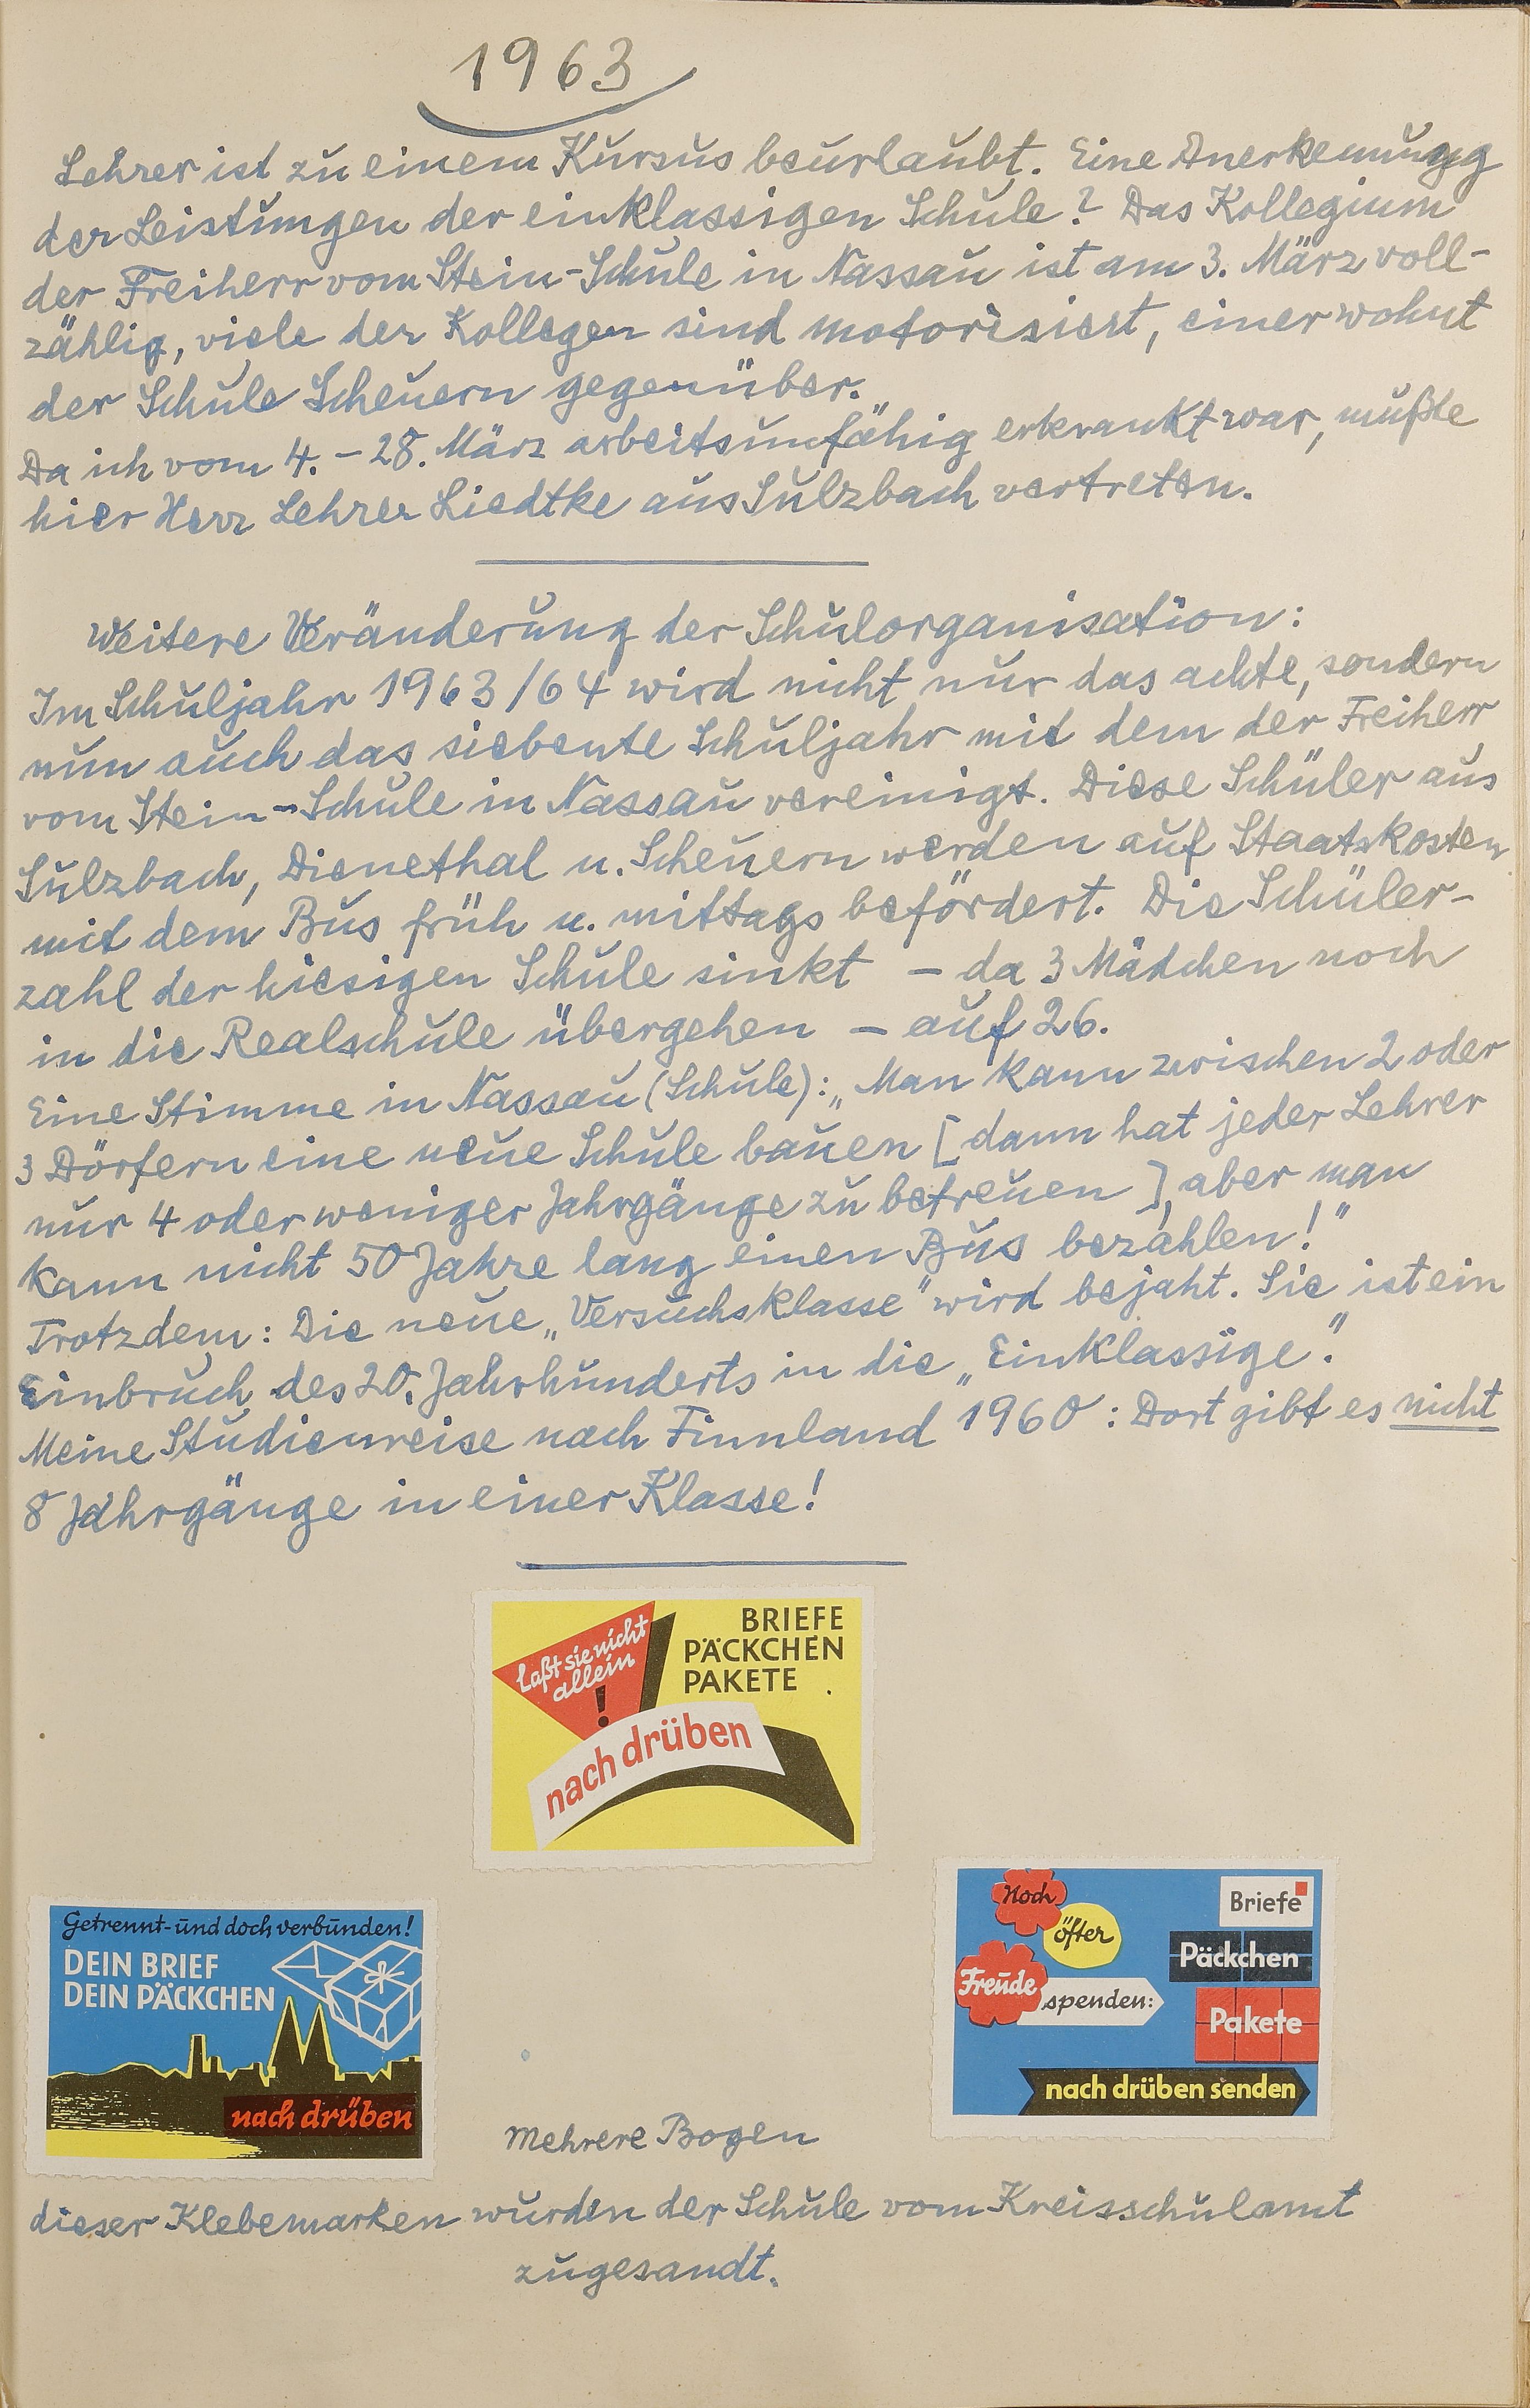 1963
Lehrer ist zu einem Kursus beurlaubt. Eine Anerkennung
der Leistungen der einklassigen Schule? Das Kollegium
der Freiherr vom Stein-Schule in Nassau ist am 3. März voll-
zählig, viele der Kollegen sind motorisiert, einer wohnt
der Schule Scheuern gegenüber.
Da ich vom 4. - 28. März arbeitsunfähig erkrankt war, mußte
hier Herr Lehrer Liedtke aus Sulzbach vertreten.
Weitere Veränderung der Schulorganisation:
Im Schuljahr 1963/64 wird nicht nur das achte, sondern
nun auch das siebente Schuljahr mit dem der Freiherr
vom Stein-Schule in Nassau vereinigt. Diese Schüler aus
Sulzbach, Dienethal u. Scheuern werden auf Staatskosten
mit dem Bus früh u. mittags befördert. Die Schüler-
zahl der hiesigen Schule sinkt - da 3 Mädchen noch
in die Realschule übergehen - auf 26.
Eine Stimme in Nassau (Schule): „Man kann zwischen 2 oder
3 Dörfern eine neue Schule bauen [dann hat jeder Lehrer
nur 4 oder weniger Jahrgänge zu betreuen], aber man
kann nicht 50 Jahre lang einen Bus bezahlen!"
Trotzdem: Die neue „Versuchsklasse" wird bejaht. Sie ist ein
Einbruch des 20. Jahrhunderts in die „Einklassige."
Meine Studienreise nach Finnland 1960: Dort gibt es nicht
8 Jahrgänge in einer Klasse!
Laßt sie nicht
allein
!
BRIEFE
PÄCKCHEN
PAKETE
nach drüben
Getrennt-und doch verbunden!
DEIN BRIEF
DEIN PÄCKCHEN
nach drüben
Noch
öfter
Freude
spenden:
Briefe
Päckchen
Pakete
nach drüben senden
Mehrere Bogen
dieser Klebemarken wurden der Schule vom Kreisschulamt
zugesandt.